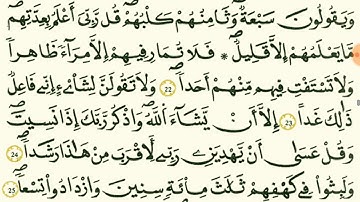 وَيَقُولُونَ سَبْعَةٌ وَثَامِنُهُمْ كَلْبُهُمْ قُل رَّبِّيَ أَعْلَمُ بِعِدَّتِهِم
مَّا يَعْلَمُهُمْ إِلَّا قَلِيلٌ * فَلَا تُمَارِ فِيهِمْ إِلَّا مِرَآءً ظَاهِراً
وَلَا تَسْتَفْتِ فِيهِم مِّنْهُمْ أَحَداً 22 وَلَا تَقُولَنَّ لِشَاْىْءٍ إِنِّي فَاعِلٌ
ذَٰلِكَ غَداً 23 إِلَّا أَنْ يَّشَآءَ اَللَّهُ وَاذْكُر رَّبَّكَ إِذَا نَسِيتَ
وَقُلْ عَسَىٰ أَنْ يَّهْدِيَنِۦ رَبِّي لِأَقْرَبَ مِنْ هَٰذَا رَشَداً 24
وَلَبِثُواْ فِي كَهْفِهِمْ ثَلَٰثَ مِاْئَةٍ سِنِينَ وَازْدَادُواْ تِسْعاً 25